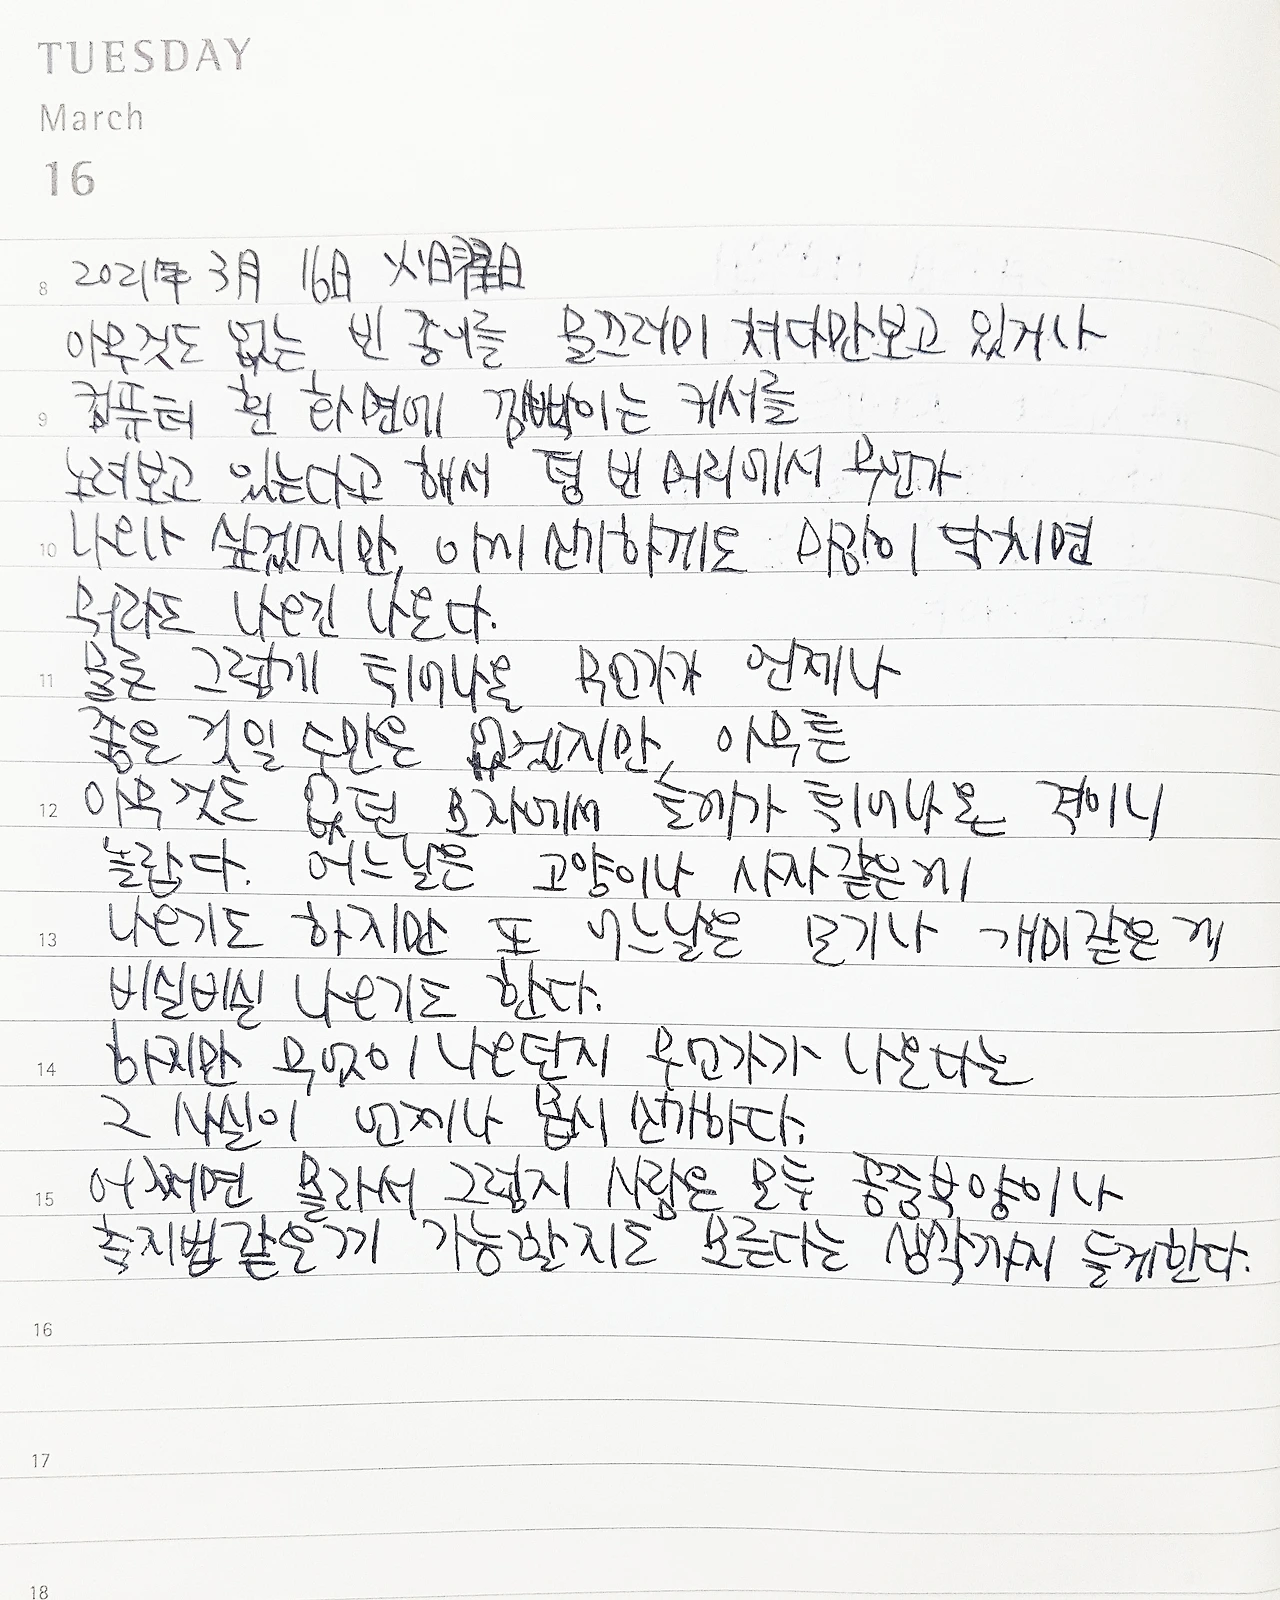 TUESDAY
March
16
2021年 3月 16日 火曜日
8
아무것도 없는 빈 종이를 물끄러미 쳐다만보고 있거나
9 컴퓨터 흰 화면에 깜빡이는 커서를
노려보고 있는다고 해서 텅 빈 머리에서 무언가
10 나오랴 싶겠지만, 어찌 신기하게도 마감이 닥치면
뭐라도 나오긴 나온다.
11 물론 그렇게 튀어나온 무언가가 언제나
좋은 것일 수만은 없겠지만, 아무튼
12 아무것도 없던 모자에서 토끼가 튀어나온 격이니
놀랍다. 어느날은 고양이나 사자같은게
13 나오기도 하지만 또 어느날은 모기나 개미같은 게
비실비실 나오기도 한다.
14 하지만 무엇이 나오던지 무언가가 나온다는
그 사실이 언제나 몹시 신기하다.
15 어쩌면 몰라서 그렇지 사람은 모두 공중부양이나
축지법같은게 가능할지도 모른다는 생각까지 들게한다.
16
17
18